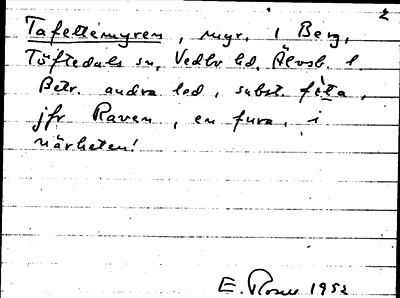 2
Tafettemyren, myr, i Berg,
Töftedals sn, Vedbo hd, Älvsb. l.
Betr. andra led, subst. feta,
jfr Raven, en fura, i
närheten!
E. Rosell 1952